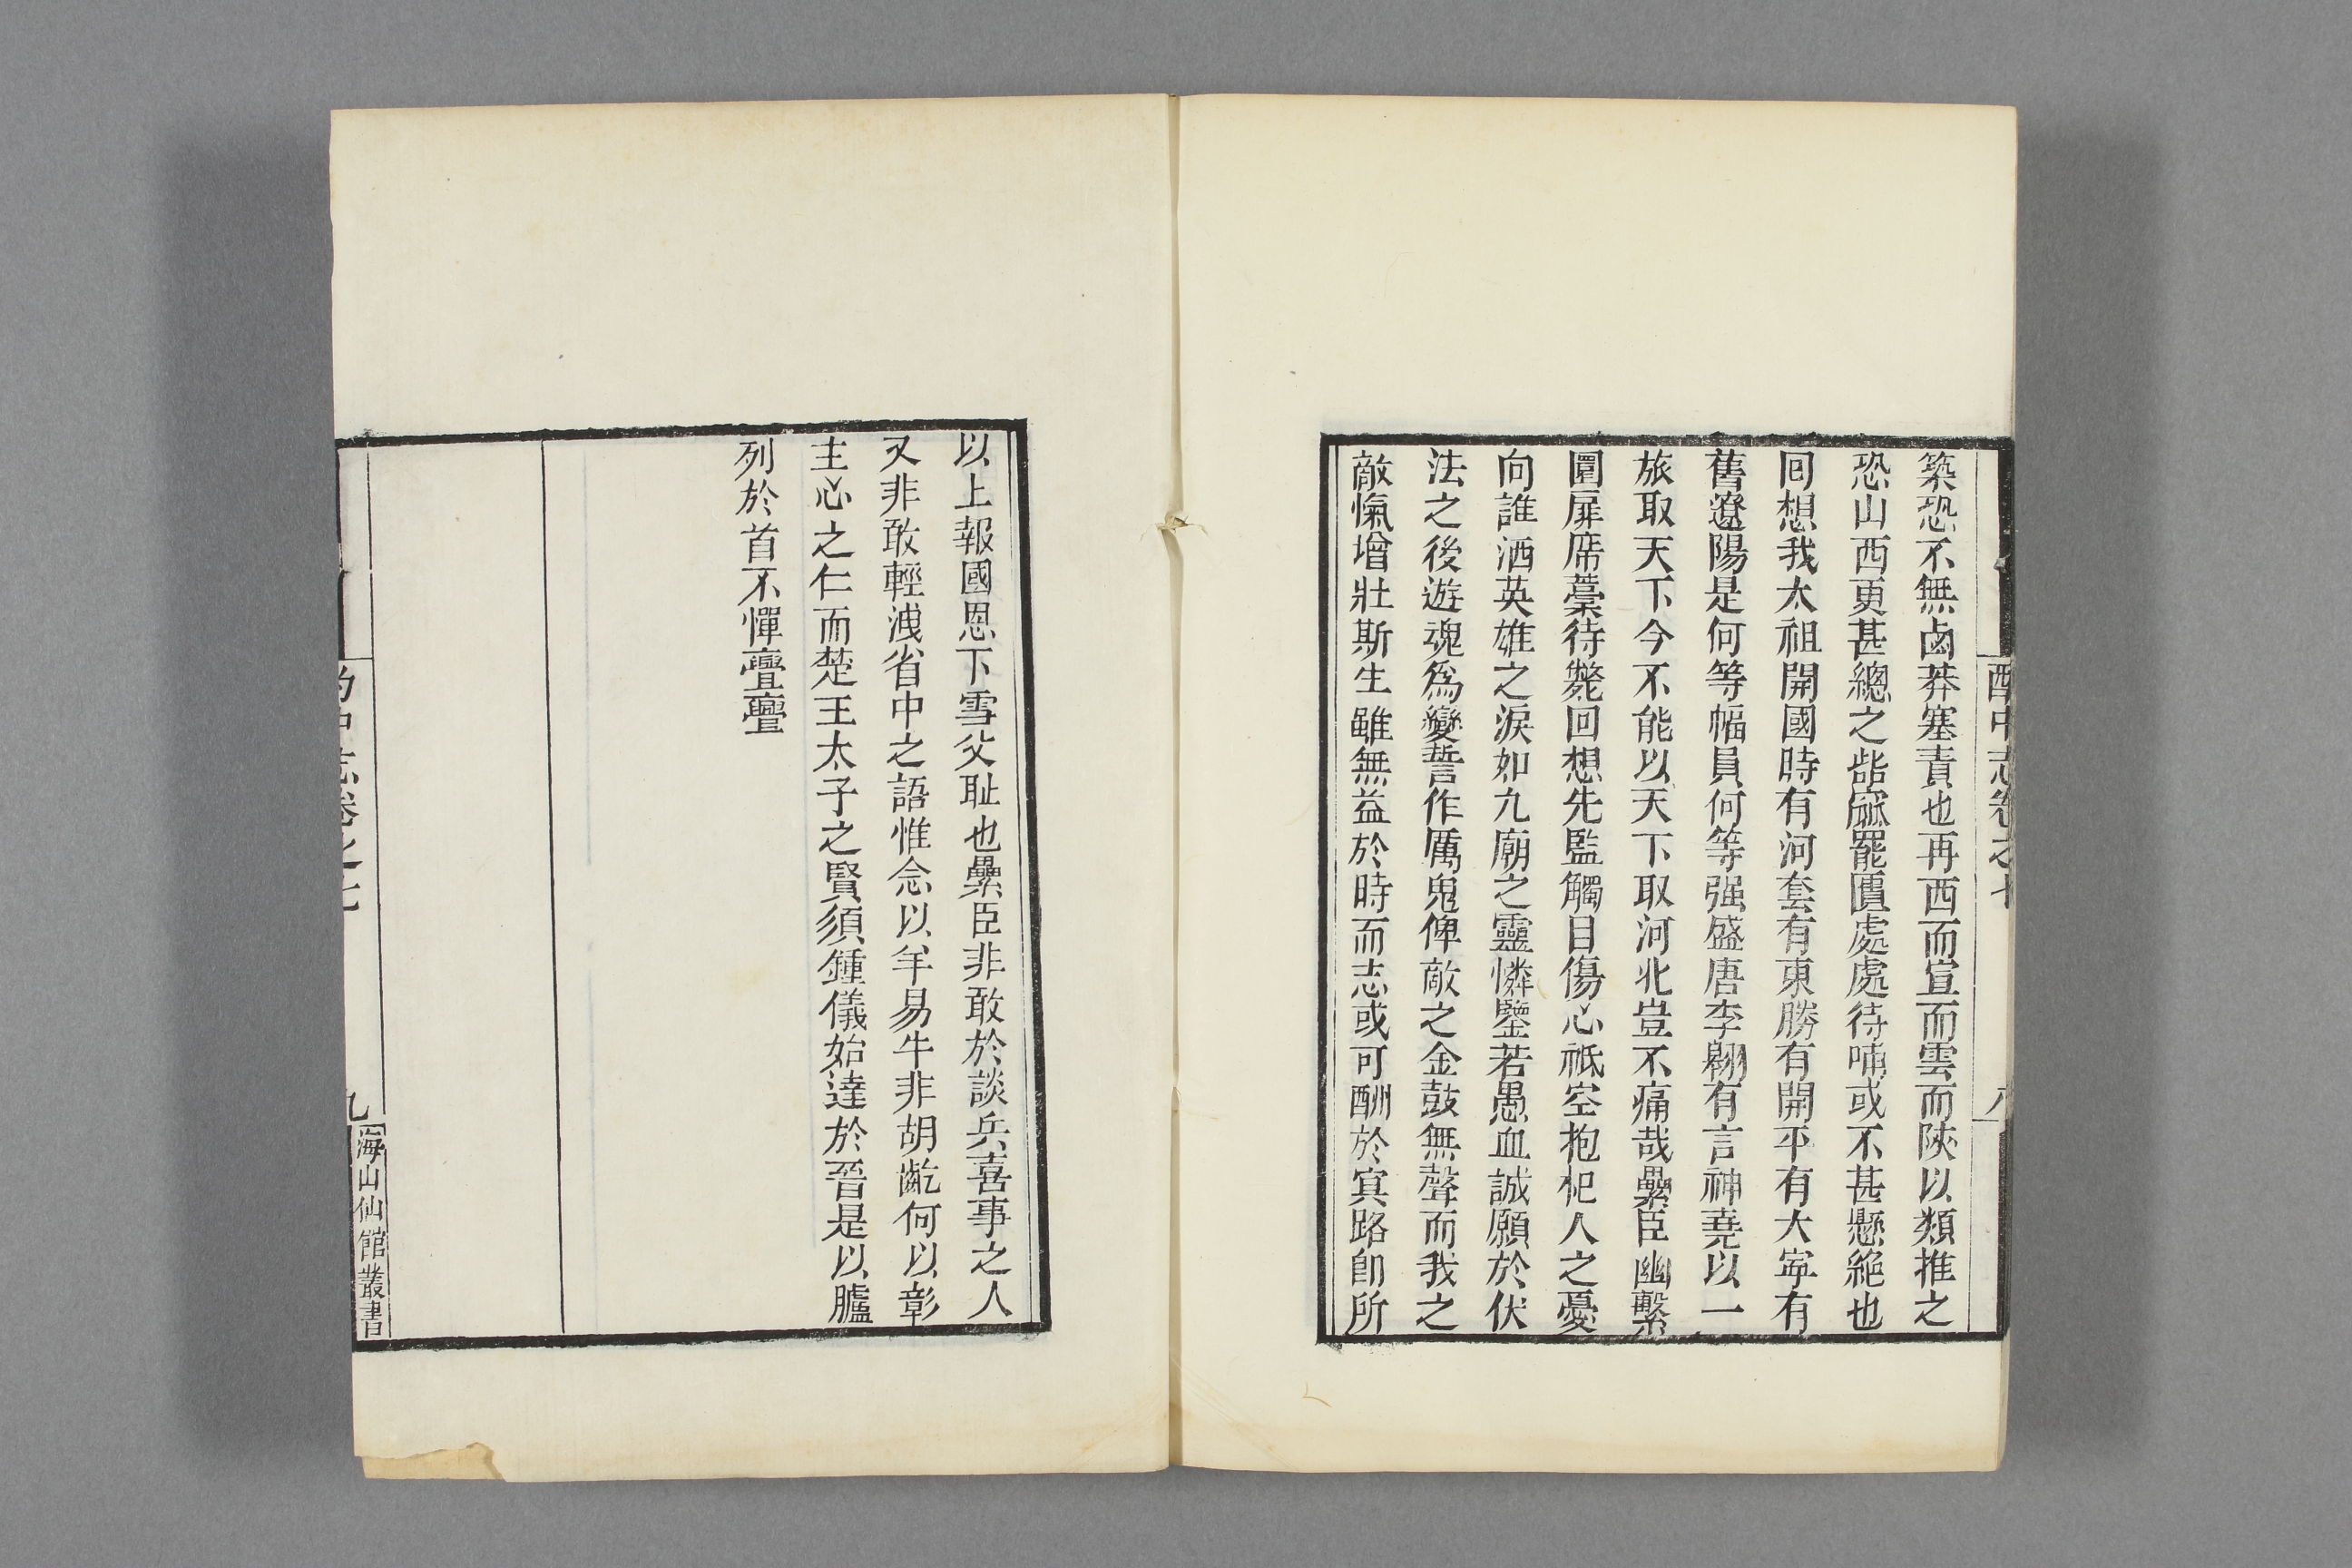 酌中志卷之七
八
築恐不無鹵莽塞責也再西而宣而雲而陝以類推之
恐山西更甚總之呰窳罷匱處處待哺或不甚懸絕也
回想我太祖開國時有河套有東勝有開平有大寧有
舊遼陽是何等幅員何等强盛唐李翺有言神堯以一
旅取天下今不能以天下取河北豈不痛哉纍臣幽繫
圜扉席藁待斃回想先監觸目傷心祇空抱杞人之憂
向誰洒英雄之淚如九廟之靈憐鑒若愚血誠願於伏
法之後遊魂爲變誓作厲鬼俾敵之金鼓無聲而我之
敵愾增壯斯生雖無益於時而志或可酬於寘路卽所
以上報國恩下雪父耻也纍臣非敢於談兵喜事之人
又非敢輕洩省中之語惟念以羊易牛非胡齕何以彰
主心之仁而楚王太子之賢須鍾儀始達於晉是以臚
列於首不憚亹亹
酌中志卷之七
九
海山仙館叢書